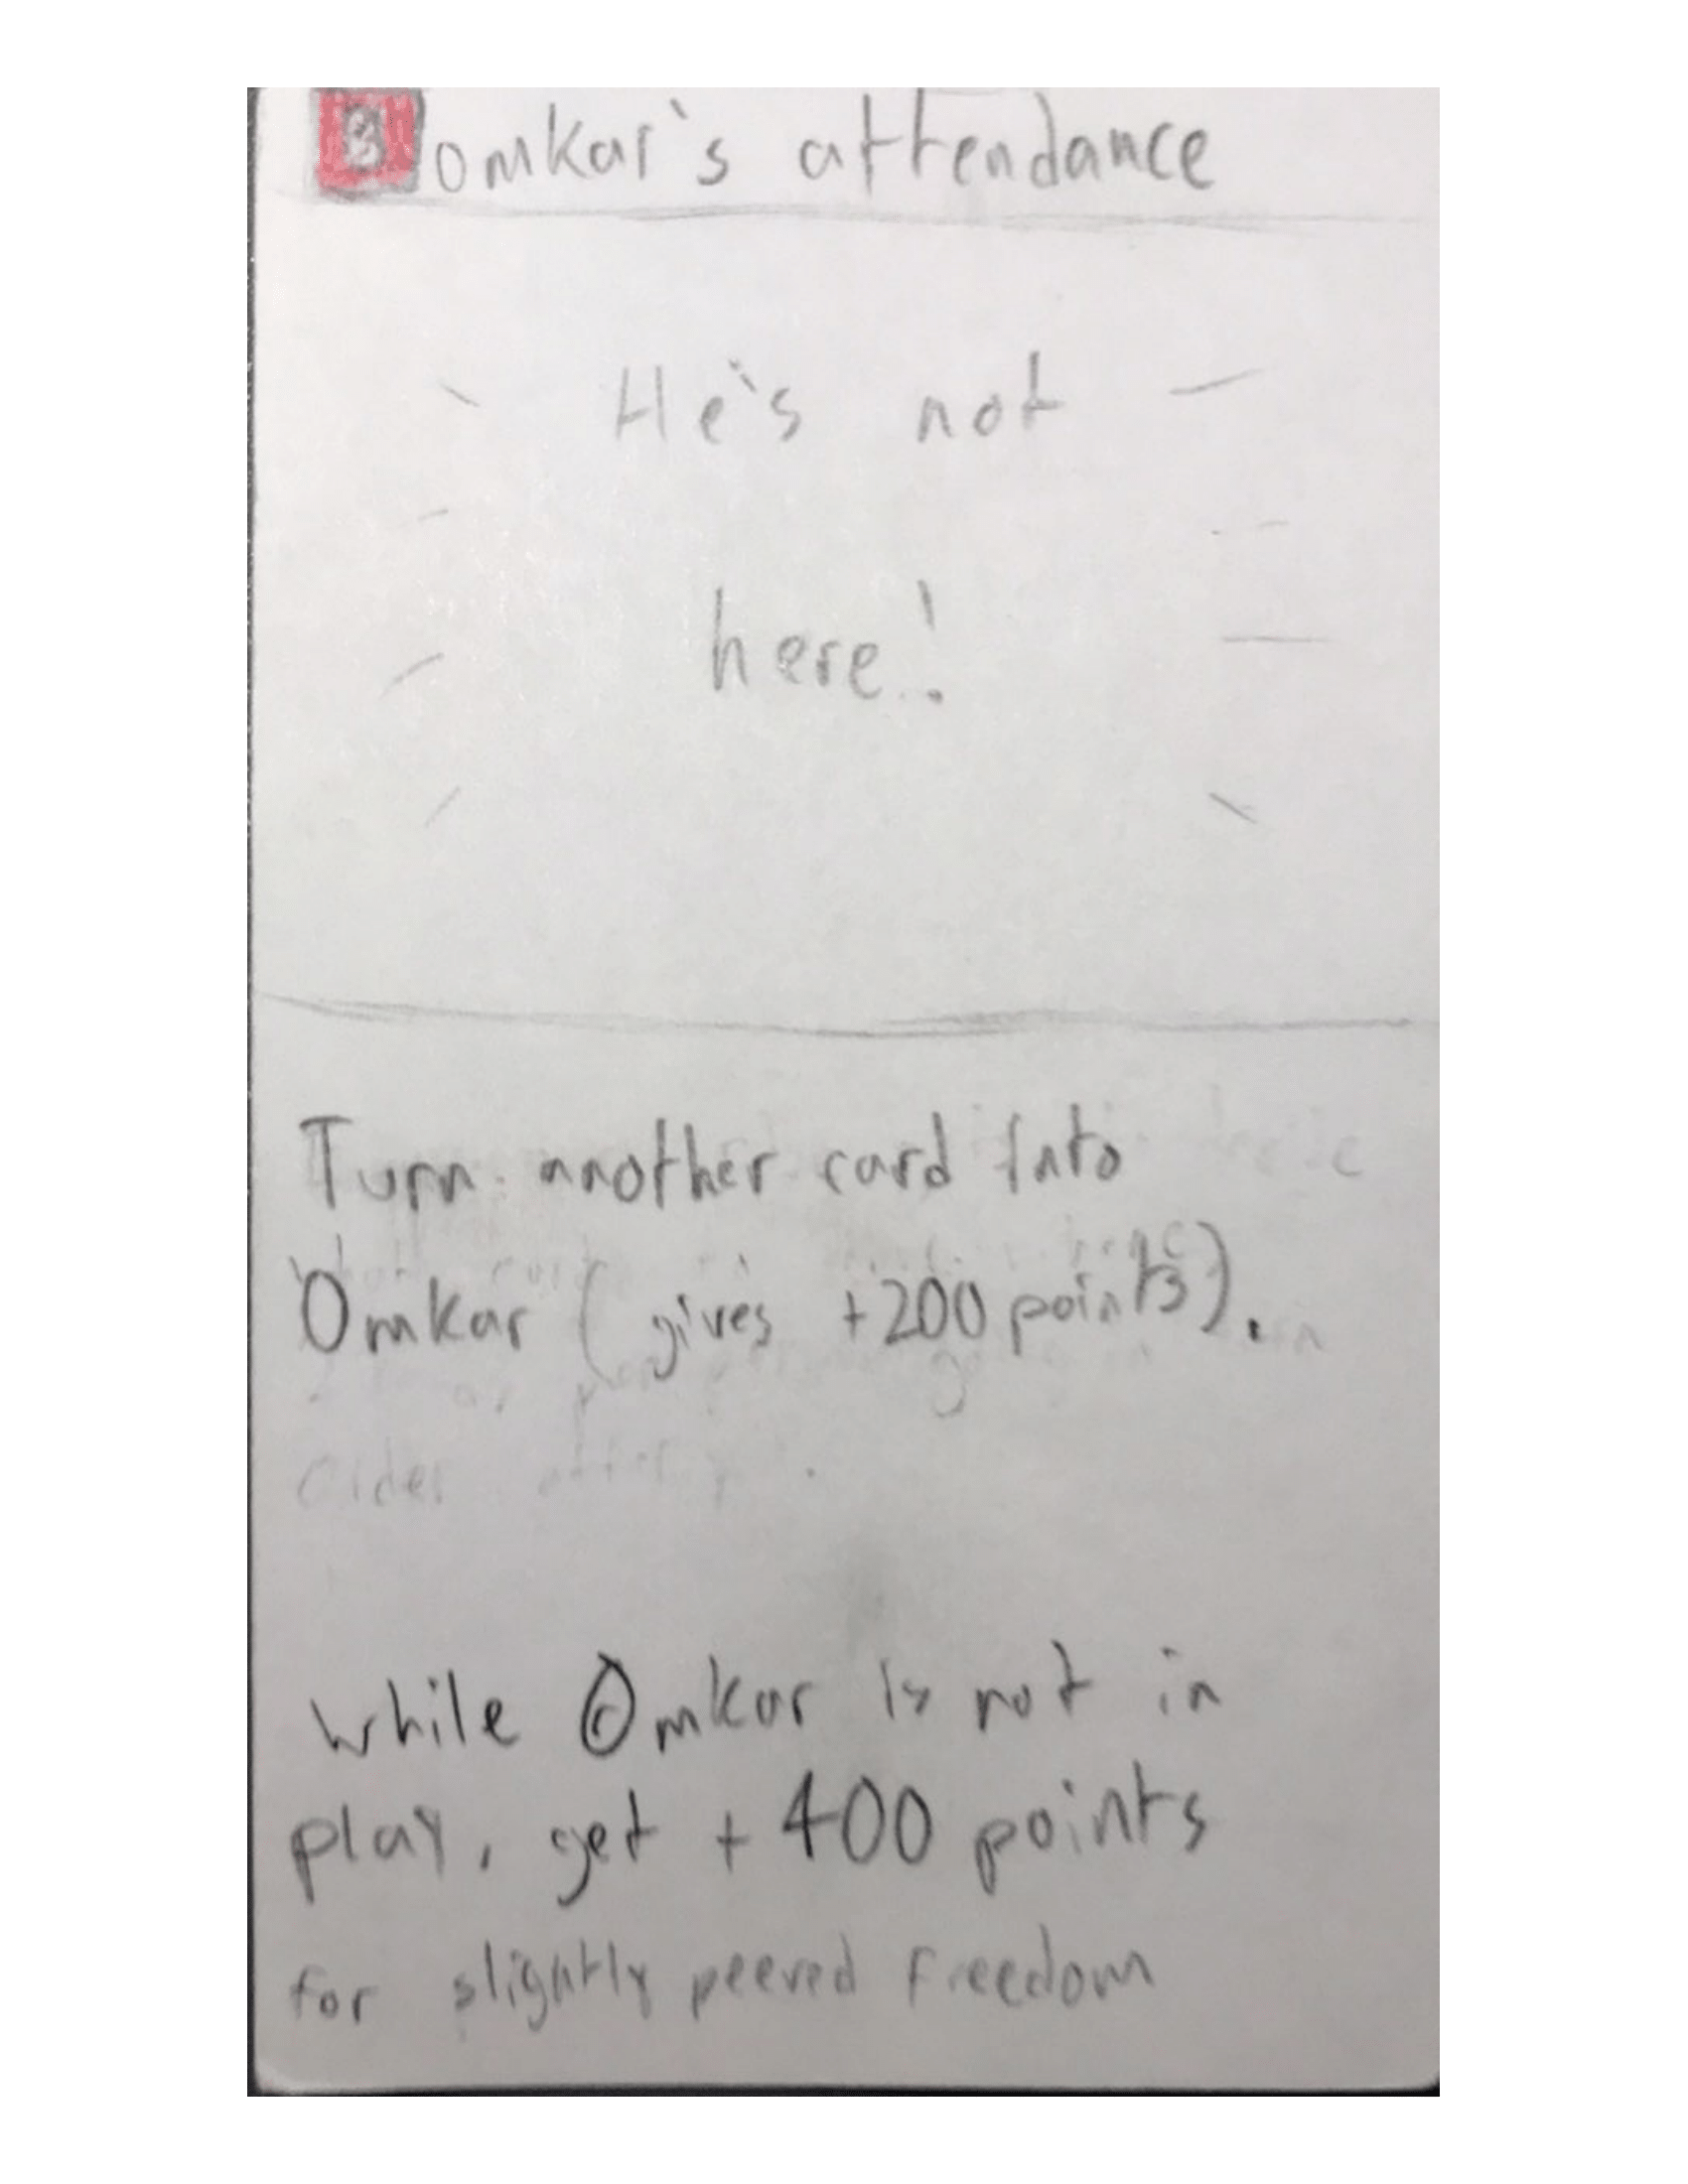 B omkar's attendance
He's not
here!
Turn another card into
Omkar (gives +200 points).
while Omkar is not in
play, get + 400 points
for slightly peeved freedom